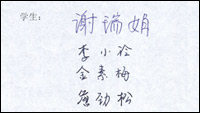 学生：谢瑞娟
李小玲
金素梅
詹劲松